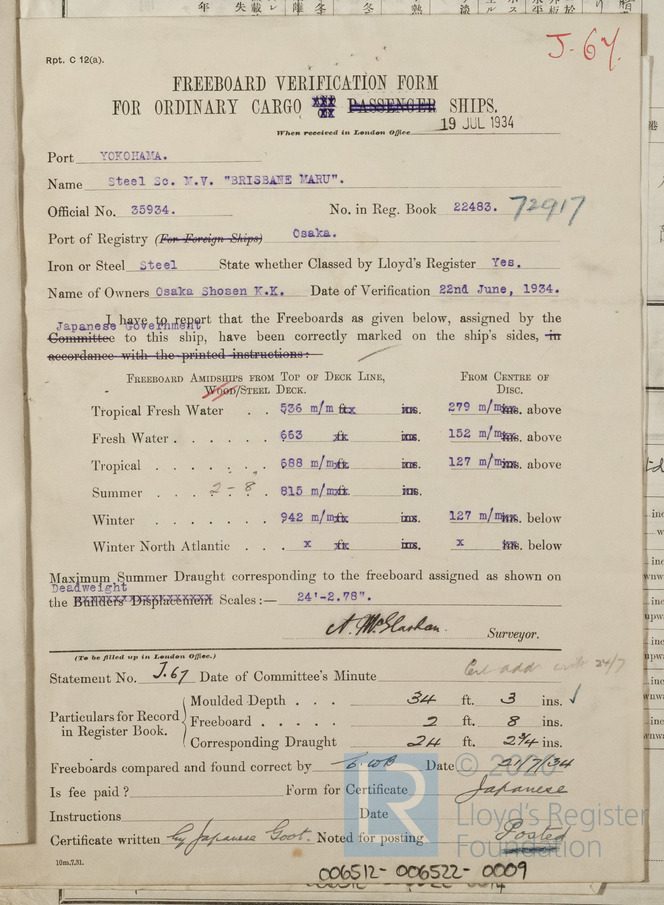 J-67.
Rpt. C 12(a).
FREEBOARD VERIFICATION FORM
FOR ORDINARY CARGO XXX XX PASSENGER SHIPS.
When received in London Office 19 JUL 1934
Port YOKOHAMA.
Name Steel Sc. M.V. "BRISBANE MARU".
Official No. 35934. No. in Reg. Book 22483. 72917
Port of Registry (For Foreign Ships) Osaka.
Iron or Steel Steel State whether Classed by Lloyd's Register Yes.
Name of Owners Osaka Shosen K.K. Date of Verification 22nd June, 1934.
I have to report that the Freeboards as given below, assigned by the
Japanese Government
Committee to this ship, have been correctly marked on the ship's sides, in
accordance with the printed instructions:—
FREEBOARD AMIDSHIPS FROM TOP OF DECK LINE, FROM CENTRE OF
WOOD/STEEL DECK. DISC.
Tropical Fresh Water . . 536 m/m ftx ins. 279 m/m ins. above
Fresh Water . . . . . . 663 ft ins. 152 m/m ins. above
Tropical . . . . . . . 688 m/m ft ins. 127 m/m ins. above
Summer . . . 2-8 . 815 m/m ft ins.
Winter . . . . . . . 942 m/m ft ins. 127 m/m ins. below
Winter North Atlantic . . . x ft ins. x ins. below
Maximum Summer Draught corresponding to the freeboard assigned as shown on
Deadweight
the Builders' Displacement Scales:— 24'-2.78".
A. McGlashan. Surveyor.
(To be filled up in London Office.)
Statement No. J.67 Date of Committee's Minute 24/7
Particulars for Record in Register Book.
Moulded Depth . . . 34 ft. 3 ins. ✓
Freeboard . . . . . 2 ft. 8 ins.
Corresponding Draught 24 ft. 2¾ ins.
Freeboards compared and found correct by Date 21/7/34
Is fee paid? Form for Certificate Japanese
Instructions Date
Certificate written by Japanese Govt. Noted for posting Posted
10m,7.31.
© 2020
Lloyd's Register
Foundation
006512-006522-0009